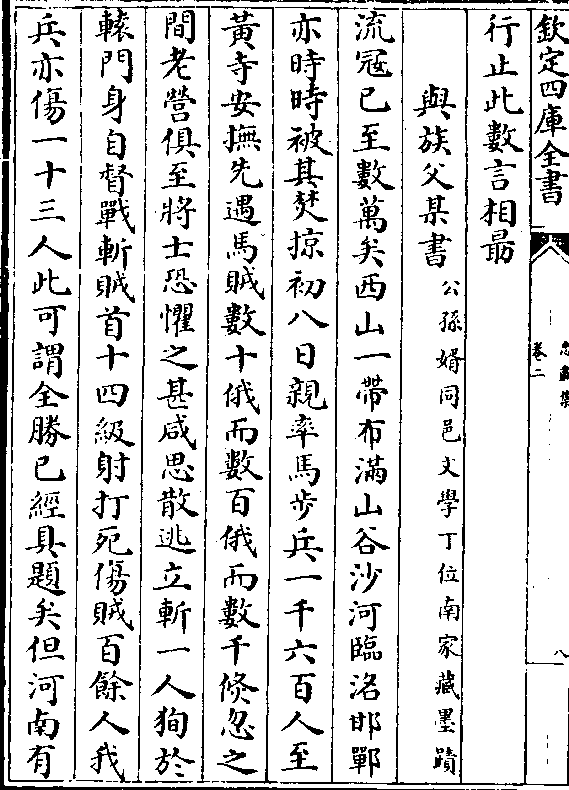 欽定四庫全書
忠肅集
卷二
八
行止此數言相勗
與族父某書
公孫婿同邑文學丁位南家藏墨蹟
流冦已至數萬矣西山一帶布滿山谷沙河臨洺邯鄲
亦時時被其焚掠初八日親率馬步兵一千六百人至
黃寺安撫先遇馬賊數十俄而數百俄而數千倐忽之
間老營俱至將士恐懼之甚咸思散逃立斬一人狥於
轅門身自督戰斬賊首十四級射打死傷賊百餘人我
兵亦傷一十三人此可謂全勝已經具題矣但河南有